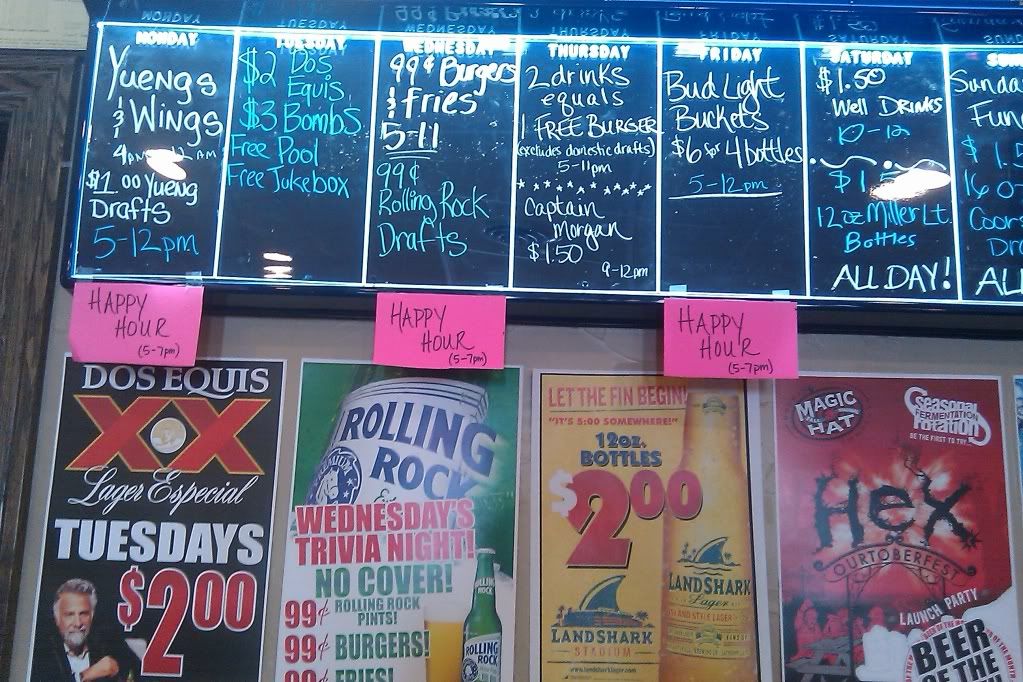 MONDAY
Yuengs
& Wings
$1.00 Yueng
Drafts
5-12pm
TUESDAY
$2 Dos
Equis
$3 Bombs
Free Pool
Free Jukebox
WEDNESDAY
99¢ Burgers
& fries
5-11
99¢
Rolling Rock
Drafts
THURSDAY
2 drinks
equals
1 FREE BURGER
(excludes domestic drafts)
5-11pm
Captain
Morgan
$1.50
9-12pm
FRIDAY
Bud Light
Buckets
$6 for 4 bottles
5-12pm
SATURDAY
$1.50
Well DRINKS
10-12
12oz Miller Lt.
Bottles
ALL DAY!
HAPPY
HOUR
(5-7pm)
HAPPY
HOUR
(5-7pm)
HAPPY
HOUR
(5-7pm)
DOS EQUIS
XX
Lager Especial
TUESDAYS
$2.00
ROLLING
ROCK
WEDNESDAY'S
TRIVIA NIGHT!
NO COVER!
99¢ ROLLING ROCK
PINTS!
99¢ BURGERS!
99¢ FRIES!
ROLLING
ROCK
LET THE FIN BEGIN!
"IT'S 5:00 SOMEWHERE!"
12oz.
BOTTLES
$2.00
LANDSHARK
STADIUM
www.landsharklager.com
LANDSHARK
Lager
ISLAND STYLE LAGER
MAGIC
HAT
Seasonal
FERMENTATION
rotation
BE THE FIRST TO TRY
HeX
OURTOBERFEST
LAUNCH PARTY
BEER
OF THE